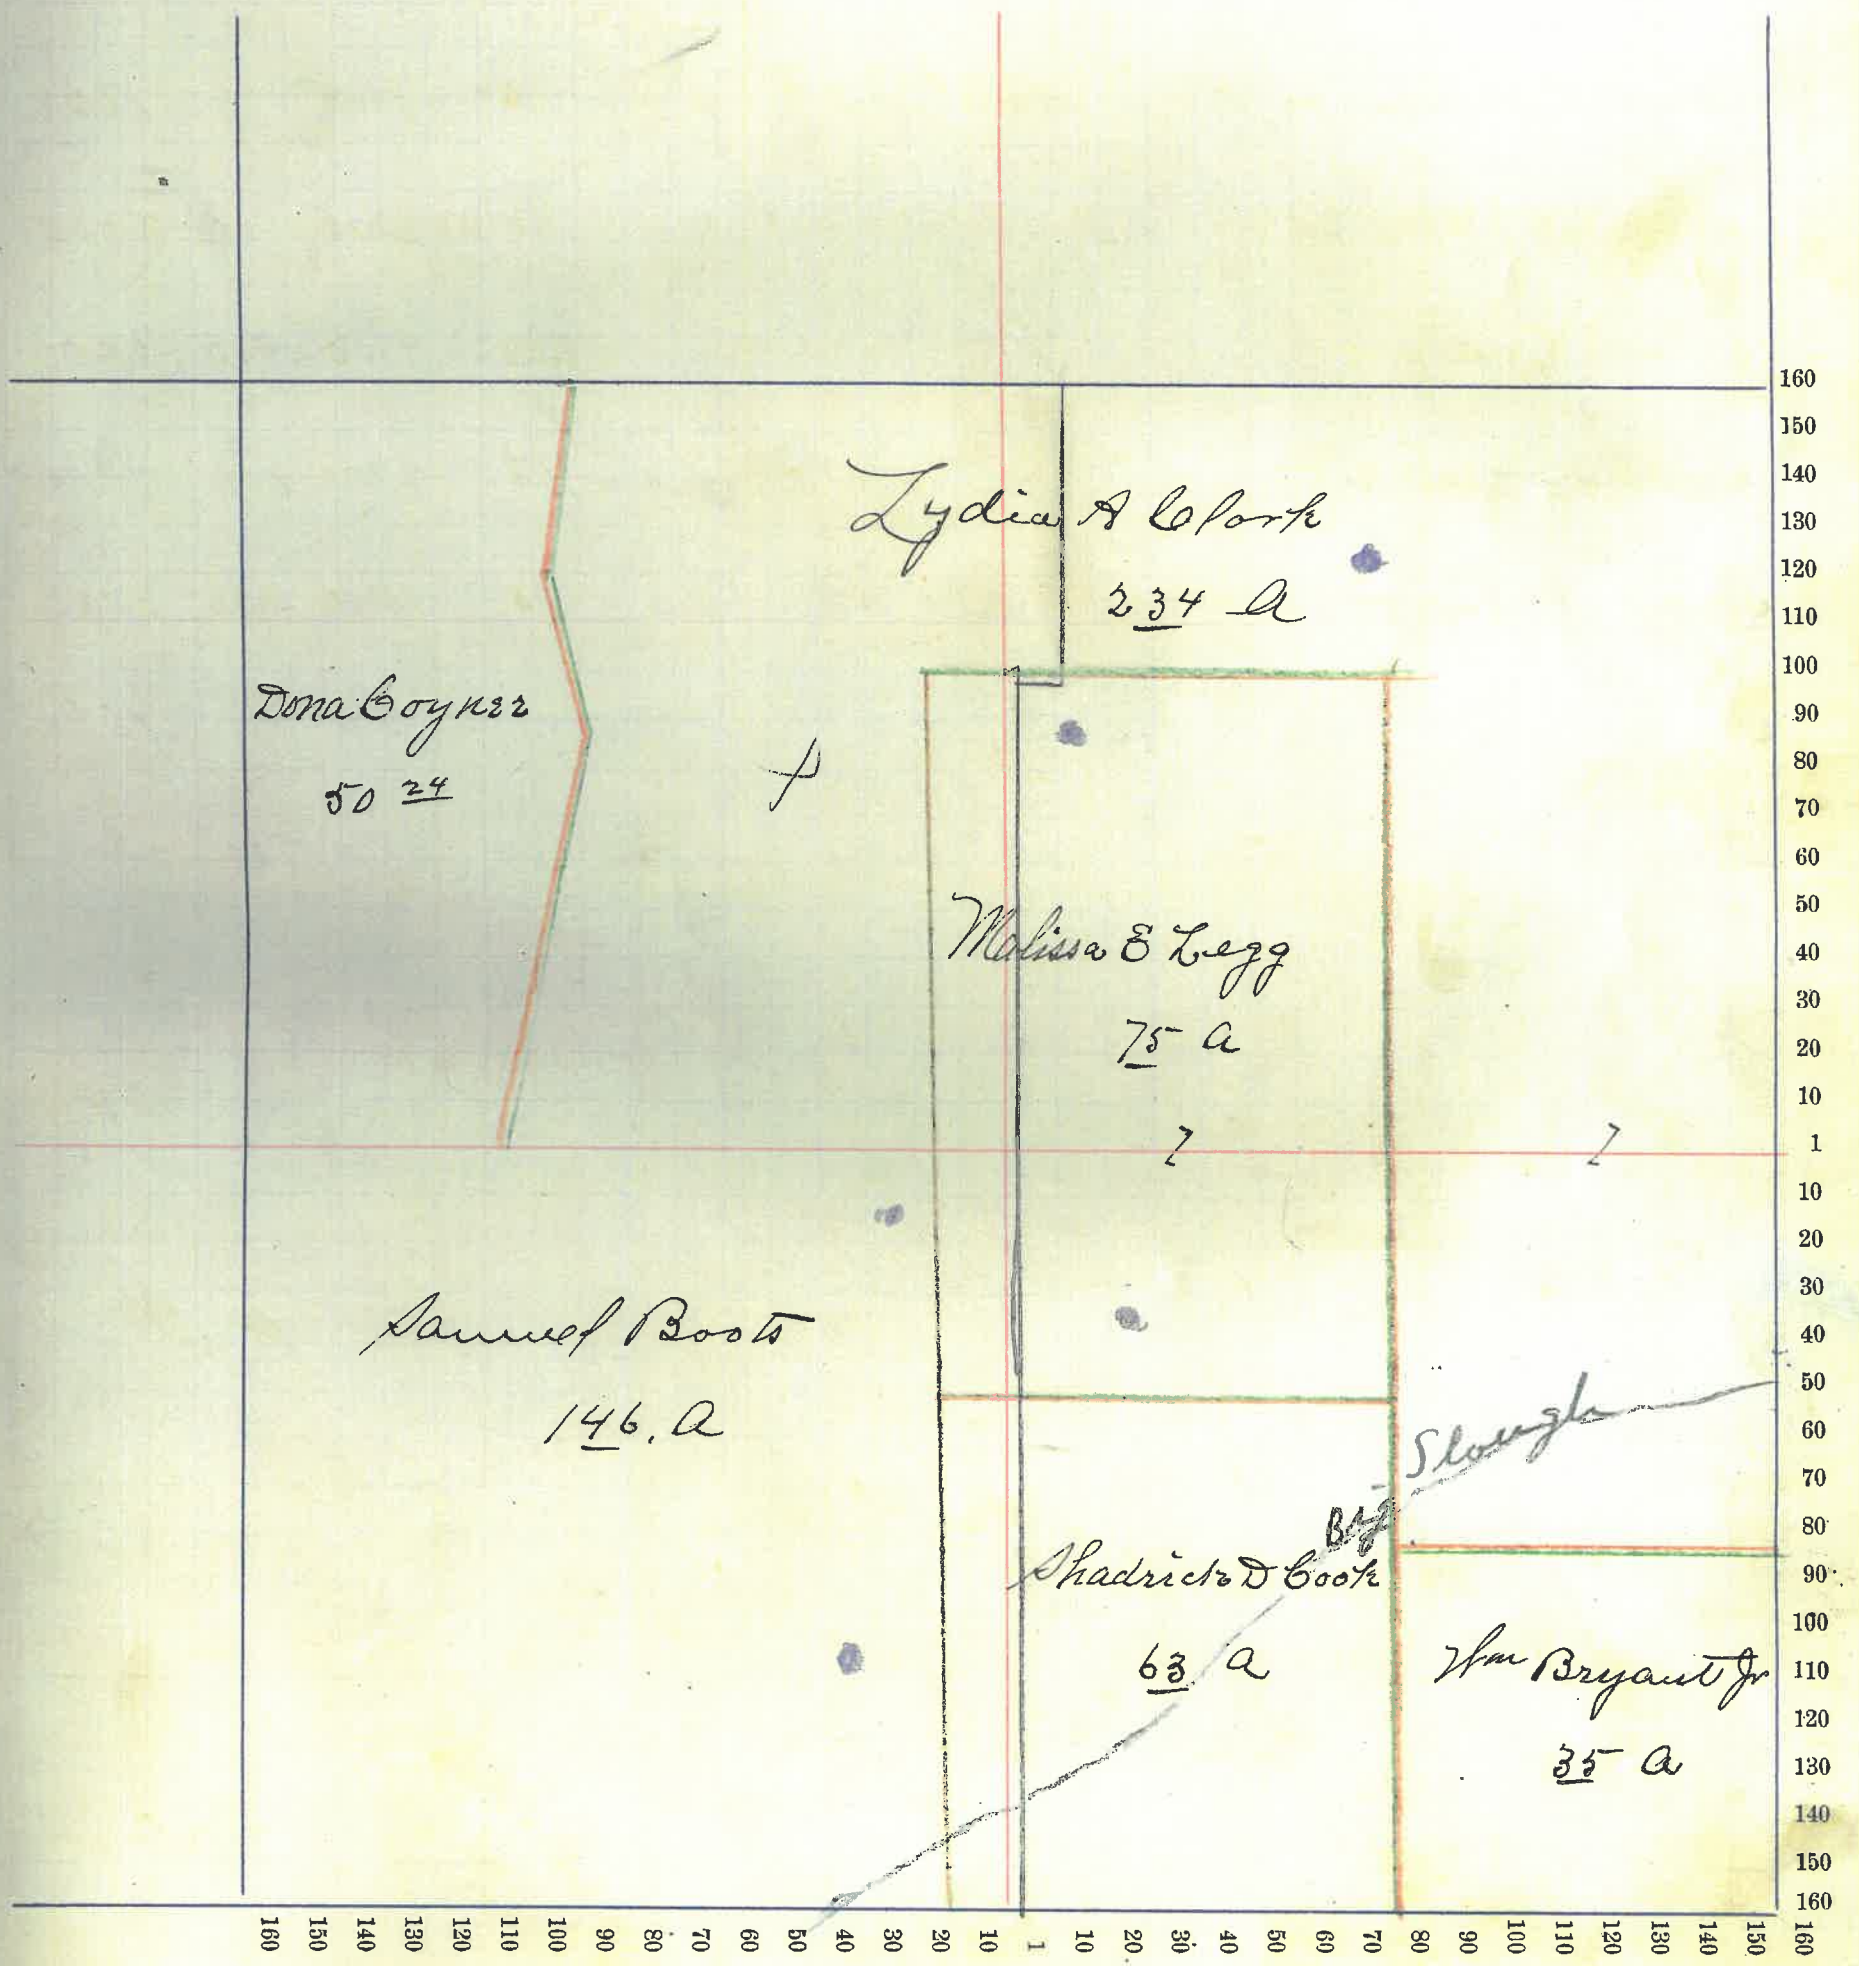 Lydia A Clark
234 A
Dona Coyner
50 24
X
Malissa E Legg
75 A
Z
Z
Samuel Boots
146. A
Big Slough
Shadrick D Cook
63 A
Wm Bryant Jr
35 A
160
150
140
130
120
110
100
90
80
70
60
50
40
30
20
10
1
10
20
30
40
50
60
70
80
90
100
110
120
130
140
150
160
160 150 140 130 120 110 100 90 80 70 60 50 40 30 20 10 1 10 20 30 40 50 60 70 80 90 100 110 120 130 140 150 160